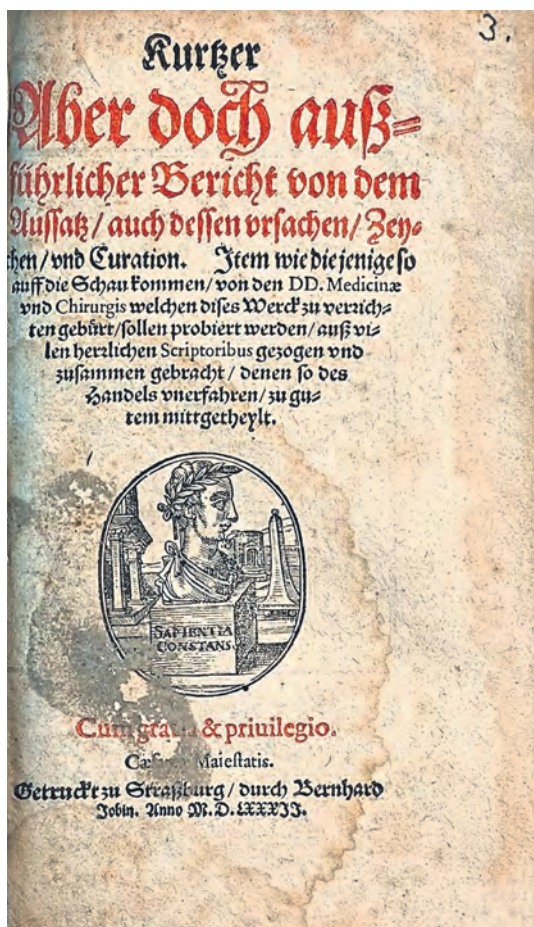 3.
Kurtzer
Aber doch auß=
führlicher Bericht von dem
Aussatz/ auch dessen vrsachen/ Zey=
chen/ vnd Curation. Item wie diejenige so
auff die Schau kommen/ von den DD. Medicinæ
vnd Chirurgis welchen dises Werck zu verrich=
ten gebürt/ sollen probiert werden/ auß vi=
len herzlichen Scriptoribus gezogen vnd
zusammen gebracht/ denen so des
Handels vnerfahren/ zu gu=
tem mittgetheylt.
SAPIENTIA
CONSTANS
Cum gratia & priuilegio.
Cæsareæ Maiestatis.
Getruckt zu Straßburg/ durch Bernhard
Jobin. Anno M.D.LXXXII.